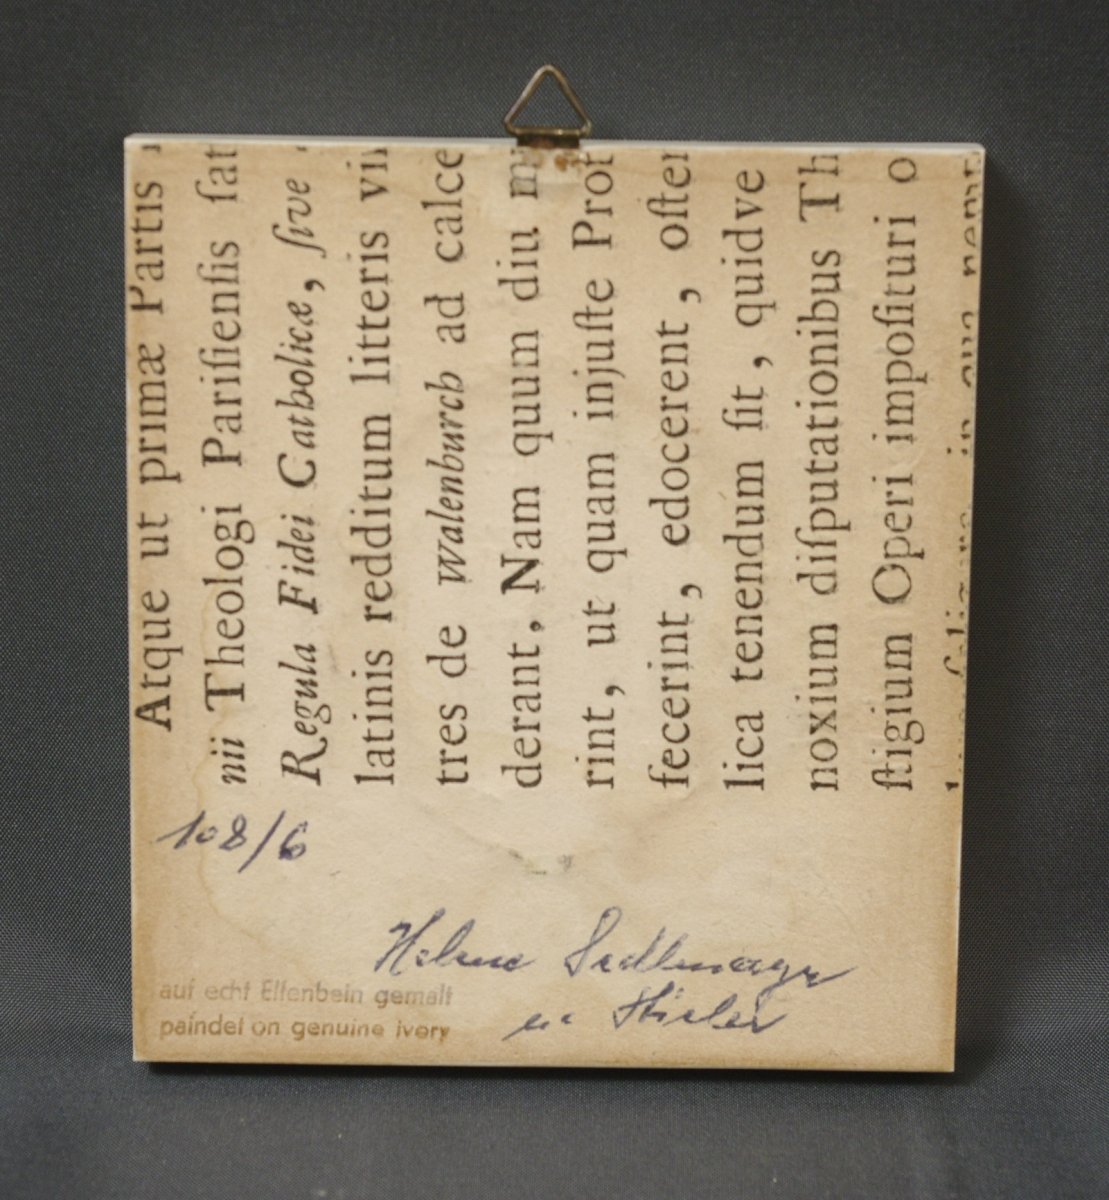 Atque ut primæ Partis
nii Theologi Pariſienſis ſat
Regula Fidei Catholicæ, ſive
latinis redditum litteris vi
tres de Walenburch ad calce
derant, Nam quum diu m
rint, ut quam injuſte Prot
fecerint, edocerent, oſten
lica tenendum ſit, quidve
noxium diſputationibus Th
ſtigium Operi impoſituri o
in qua nemp
108/6
Helene Sedlmayr
Stieler
auf echt Elfenbein gemalt
paindet on genuine ivory